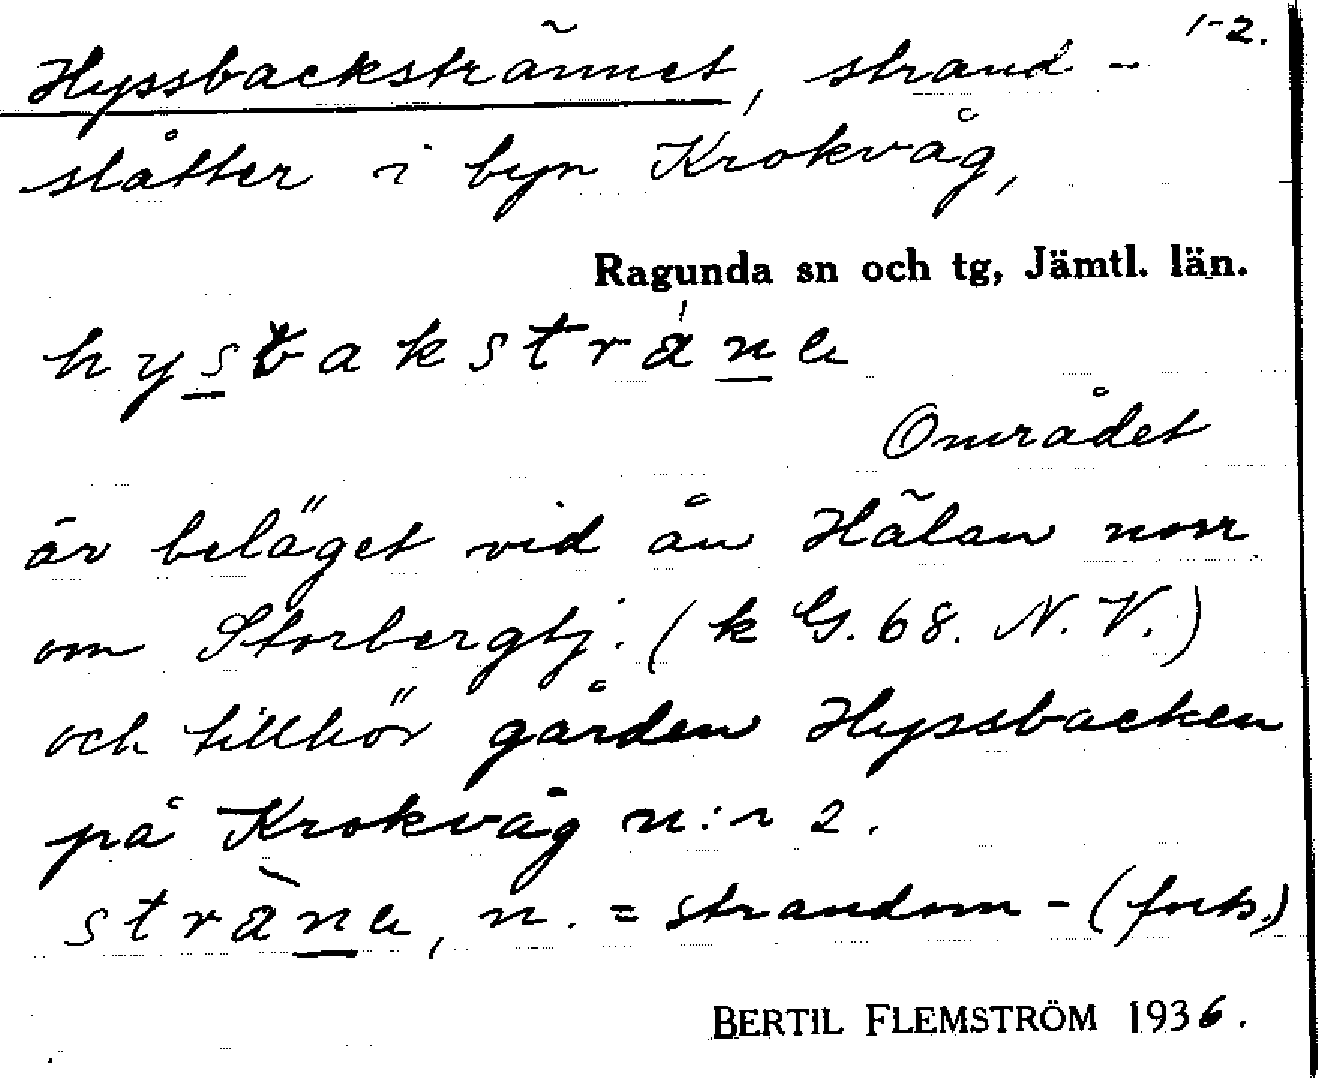 1-2.
Hyssbackstrännet, strand-
slåtter i byn Krokvåg,
Ragunda sn och tg, Jämtl. län.
hysbakstränα
Området
är beläget vid ån Hälan norr
om Storbergtj. (k G. 68. N. V.)
och tillhör gården Hyssbacken
på Krokvåg n:r 2.
stränα, n. = strandom- (forts.)
BERTIL FLEMSTRÖM 1936.